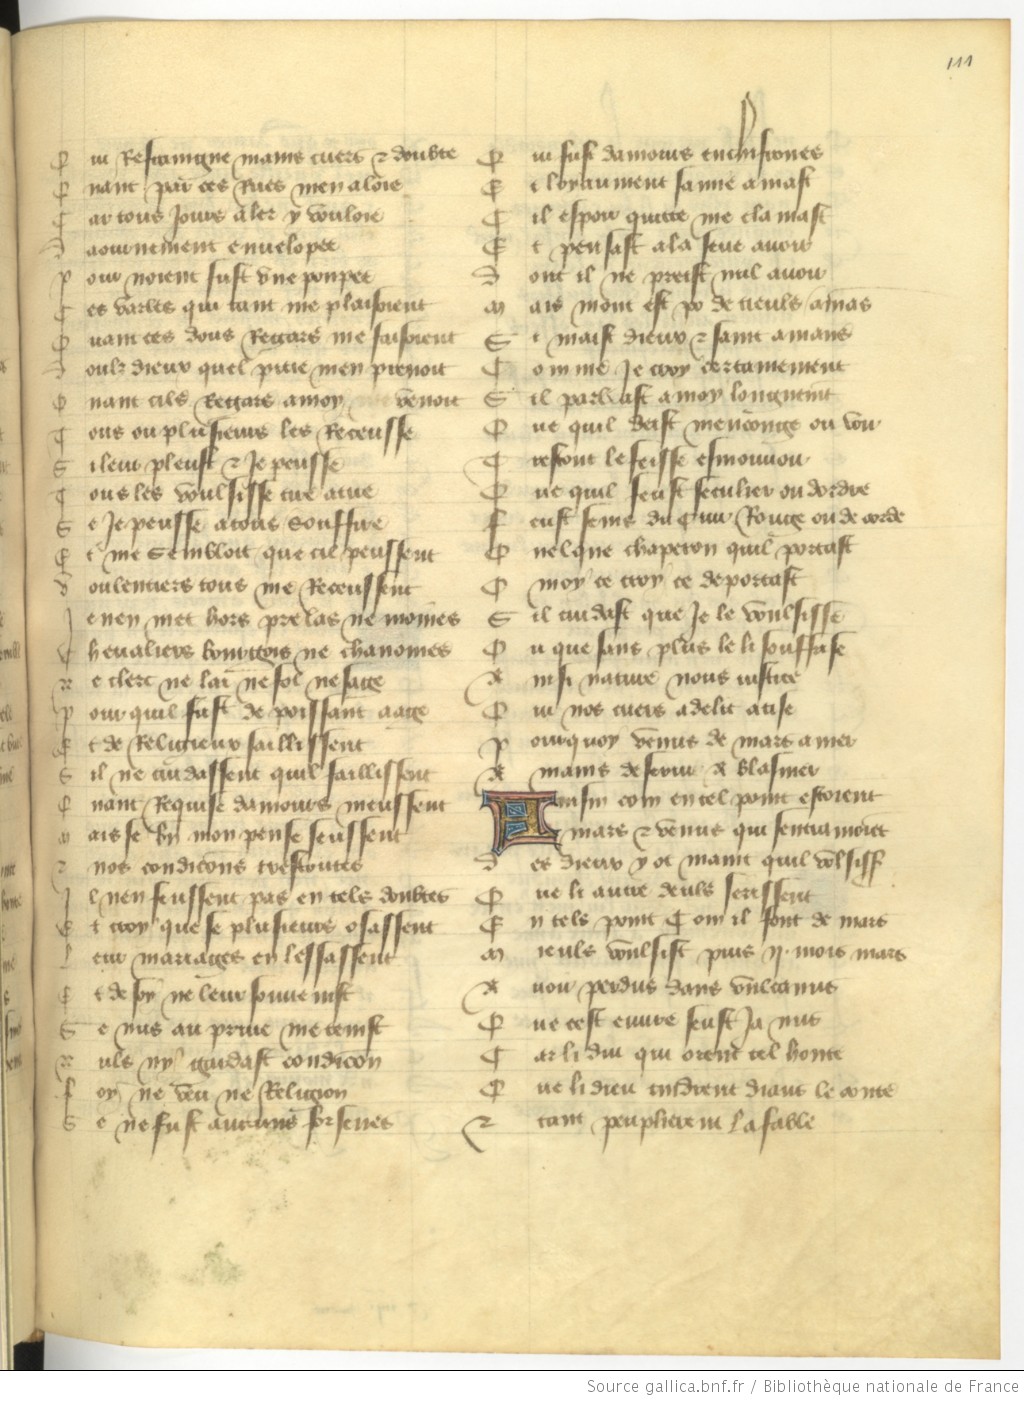 111
Q ui Restraingne mains cuers ⁊ doubte
Q uant par ces Rues men aloie
C ar tous Jours aler y vouloie
D aournement enuelopee
P our noient fust vne poupee
C es varles qui tant me plaisoient
Q uant ces dous Regars me faisoient
D oulz dieux quel pitie men prenoit
Q uant cils Regars a moy venoit
T ous ou plusieurs les Receusse
S il leur pleust ⁊ Je peusse
T ous les voulsisse tire a tire
S e Je peusse a tous souffire
E t me sembloit que se peussent
V oulentiers tous me Receussent
J e nen met hors prelas ne moines
C heualiers bourgois ne chanoines
N e clerc ne lai ne fol ne sage
P our quil fust de poissant aage
E t de Religieux saillissent
S il ne cuidassent quil faillissent
Q uant Requise damours meussent
M ais se bn mon pense seussent
⁊ nos condicons trestoutes
J l nen feussent pas en tels doubtes
E t croy que se plusieurs osassent
L eur mariages en lessassent
E t de foy ne leur souuenist
S e nus au priue me tenist
N uls ny gardast condicon
F oy ne veu ne Religion
S e ne fust aucuns forsenes
Q ui fust damours enchifrones
E t loyaument samie amast
C il espoir quitte me clamast
E t pensast a la seue auoir
D ont il ne preist nul auoir
M ais mout est po de tieuls amas
S i maist dieux ⁊ saint amans
C omme Je croy certainement
S il parlast a moy longuemt
Q ue quil deist menconge ou voir
T restout le feisse esmouuoir
Q ue quil feust seculier ou dordre
F eust seins du cuir Rouge ou de corde
Q uelque chaperon quil portast
O moy ce croy ce deportast
S il cuidast que Je le voulsisse
O u que sans plus le li souffrise
A insi nature nous iustice
Q ui nos cuers a delit atise
P ourquoy venus de mars amer
A mains deseruir a blasmer
A insin com en tel point estoient
mars ⁊ venus qui sentramoiet
D es dieux y ot maint quil volsist
Q ue li autre deuls serissent
E n tels point Com il font de mars
M ieuls voulsist puis ij. mois mars
A uoir perdus dans vulcanus
Q ue cest euure seust Ja nus
C ar li dui qui orent tel honte
Q ue li dieu tindrent diaut le conte
⁊ tant peuplierent la fable
Source gallica.bnf.fr / Bibliothèque nationale de France